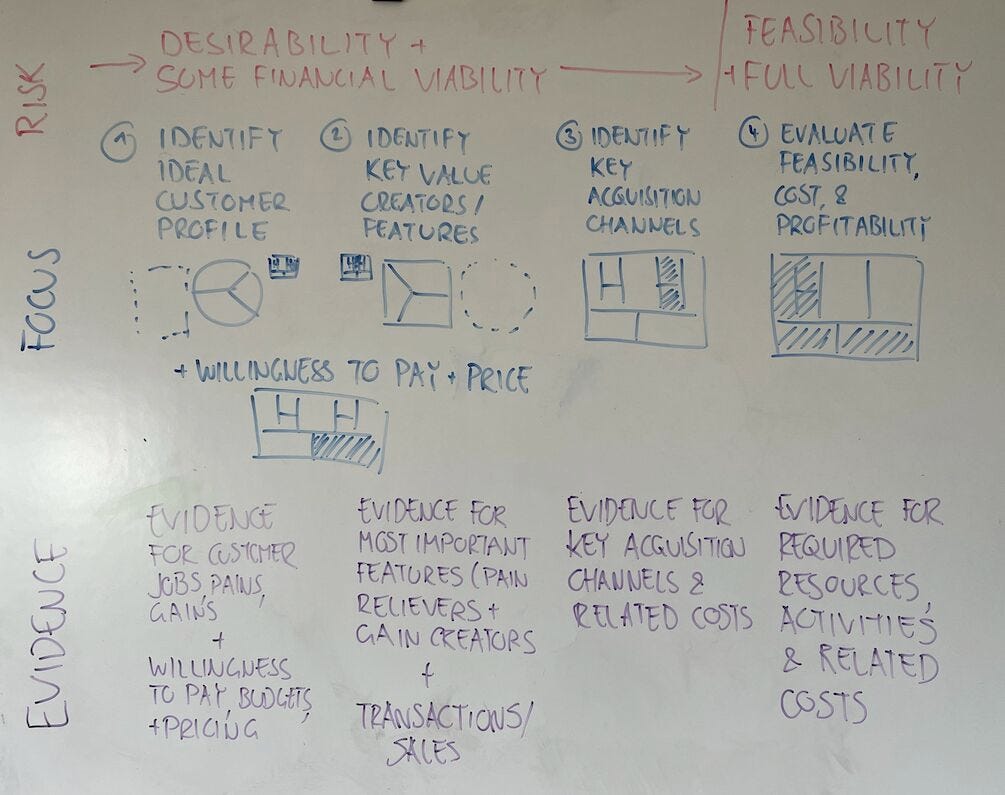 RISK
→ DESIRABILITY +
SOME FINANCIAL VIABILITY →
FEASIBILITY
+ FULL VIABILITY
FOCUS
① IDENTIFY
IDEAL
CUSTOMER
PROFILE
② IDENTIFY
KEY VALUE
CREATORS/
FEATURES
③ IDENTIFY
KEY
ACQUISITION
CHANNELS
④ EVALUATE
FEASIBILITY,
COST, &
PROFITABILITY
+ WILLINGNESS TO PAY + PRICE
EVIDENCE
EVIDENCE
FOR CUSTOMER
JOBS, PAINS,
GAINS
+
WILLINGNESS
TO PAY, BUDGETS,
+ PRICING
EVIDENCE FOR
MOST IMPORTANT
FEATURES (PAIN
RELIEVERS +
GAIN CREATORS
+
TRANSACTIONS/
SALES
EVIDENCE FOR
KEY ACQUISITION
CHANNELS &
RELATED COSTS
EVIDENCE FOR
REQUIRED
RESOURCES,
ACTIVITIES
& RELATED
COSTS